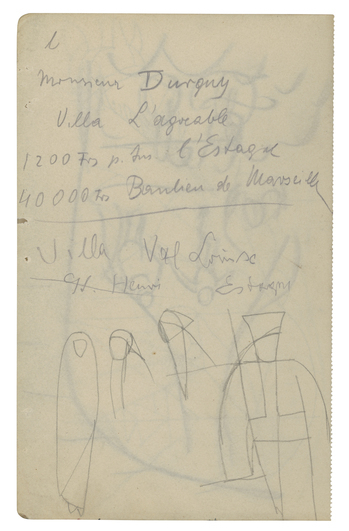 Monsieur Durguy
Villa L'agréable
1200 Frs p. ans l'Estaque
40000 Frs Banlieu de Marseille
Villa Val Louise
St. Henri Estaque